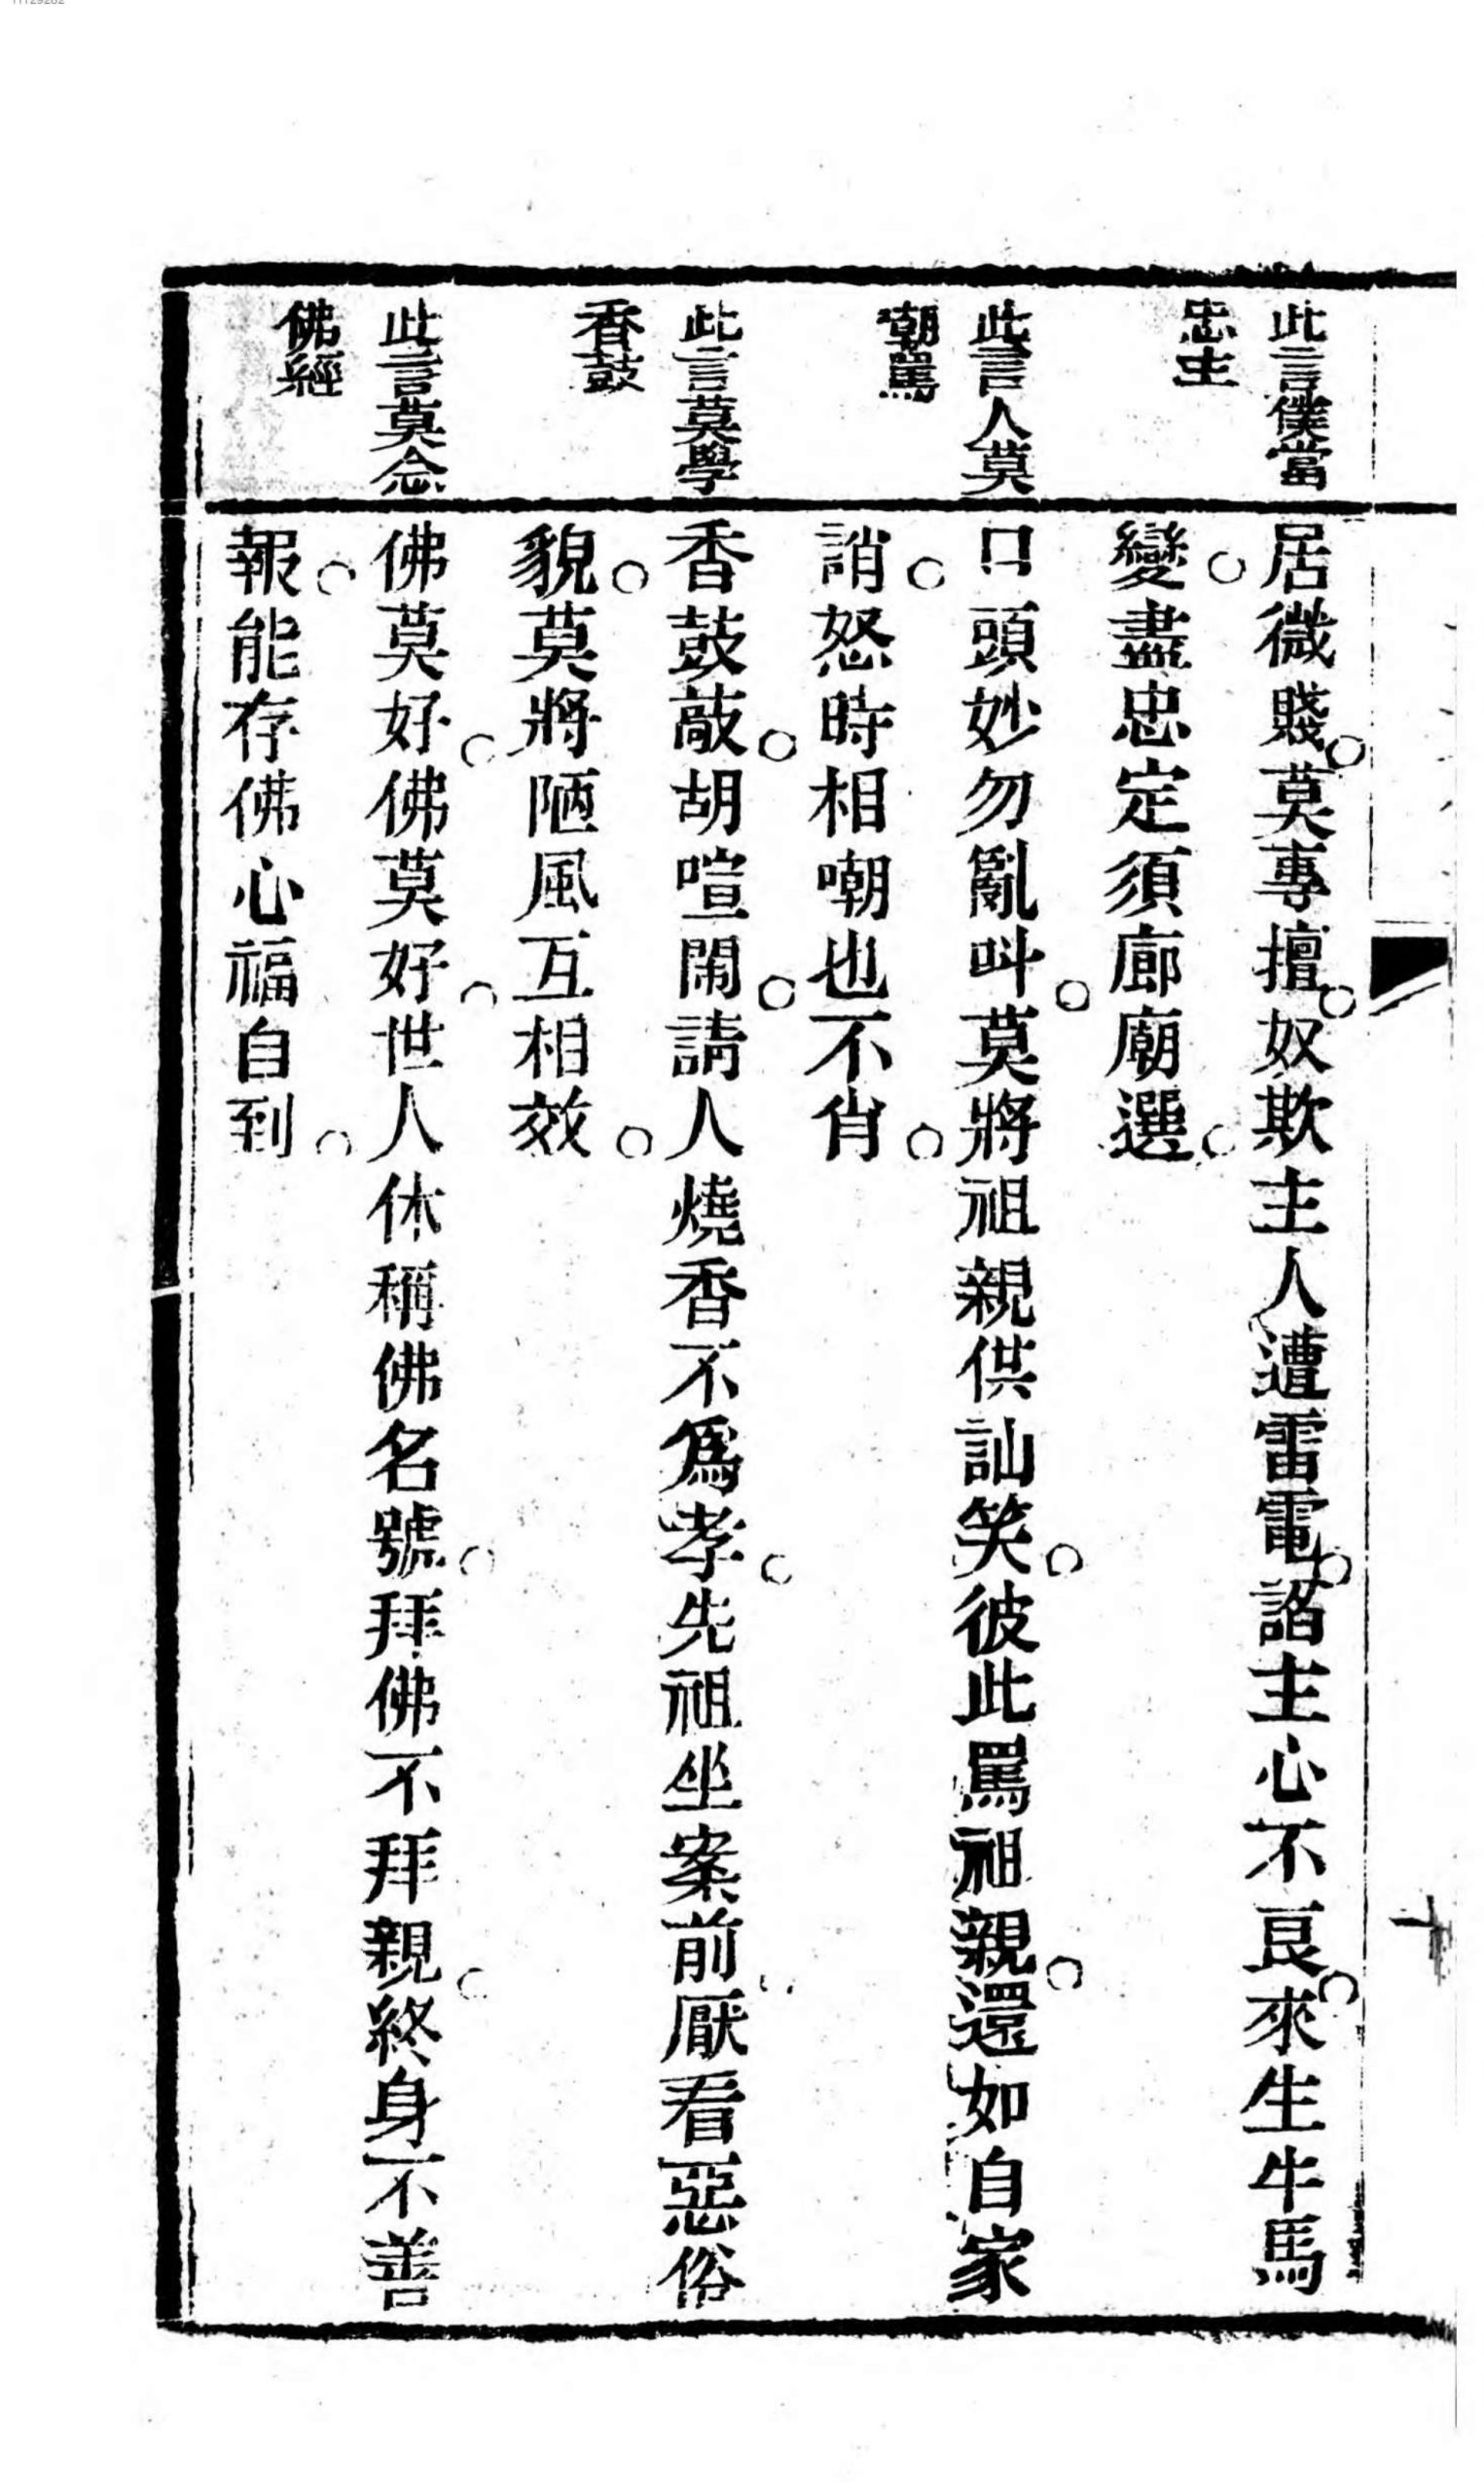 此言僕當
忠主
居微賤○莫專擅○奴欺主人遭雷電○謟主心不良○來生牛馬
變○盡忠定須廊廟選○
此言人莫
嘲罵
口頭妙勿亂叫○莫將祖親供訕笑○彼此罵祖親○還如自家
誚○怒時相嘲也不肖○
此言莫學
香鼓
香鼓敲○胡喧閙○請人燒香不爲孝○先祖坐案前○厭看惡俗
貌○莫將陋風互相效○
此言莫念
佛經
佛莫好○佛莫好○世人休稱佛名號○拜佛不拜親○終身不善
報○能存佛心福自到○
十